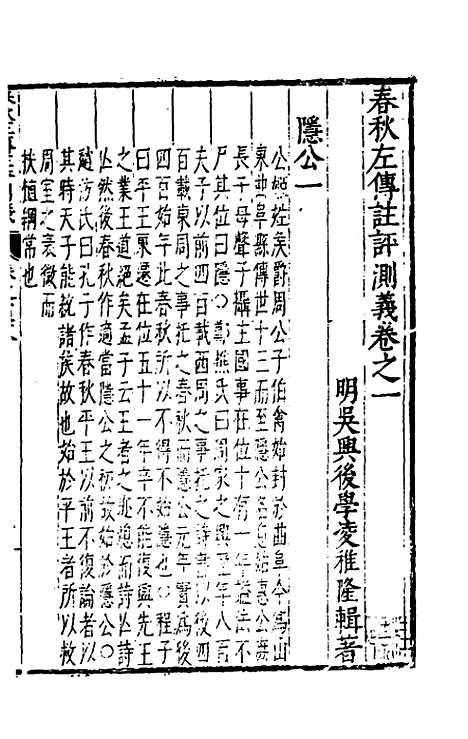 春秋左傳註評測義卷之一
明吳興後學凌稚隆輯著
隱公一
公姬姓矦爵周公子伯禽始封於曲阜今爲山
東曲阜縣傳世十三而至隱公名息姑惠公庶
長子母聲子攝主國事在位十有一年諡法不
尸其位曰隱○鄭樵氏曰周家之興至年八百
夫子以前四百載西周之事托之詩書以後四
百載東周之事托之春秋隱公元年實爲後
四百始年此春秋所以不得不始隱也○程子
曰平王東遷在位五十一年卒不能復興先王
之業王道絕矣孟子云王者之迹熄而詩亡詩
亡然後春秋作適當隱公之初故始於隱公○
趙汸氏曰孔子作春秋平王以前不復論者以
其時天子能統諸矦故也始於平王者所以救
周室之衰微而
扶植綱常也